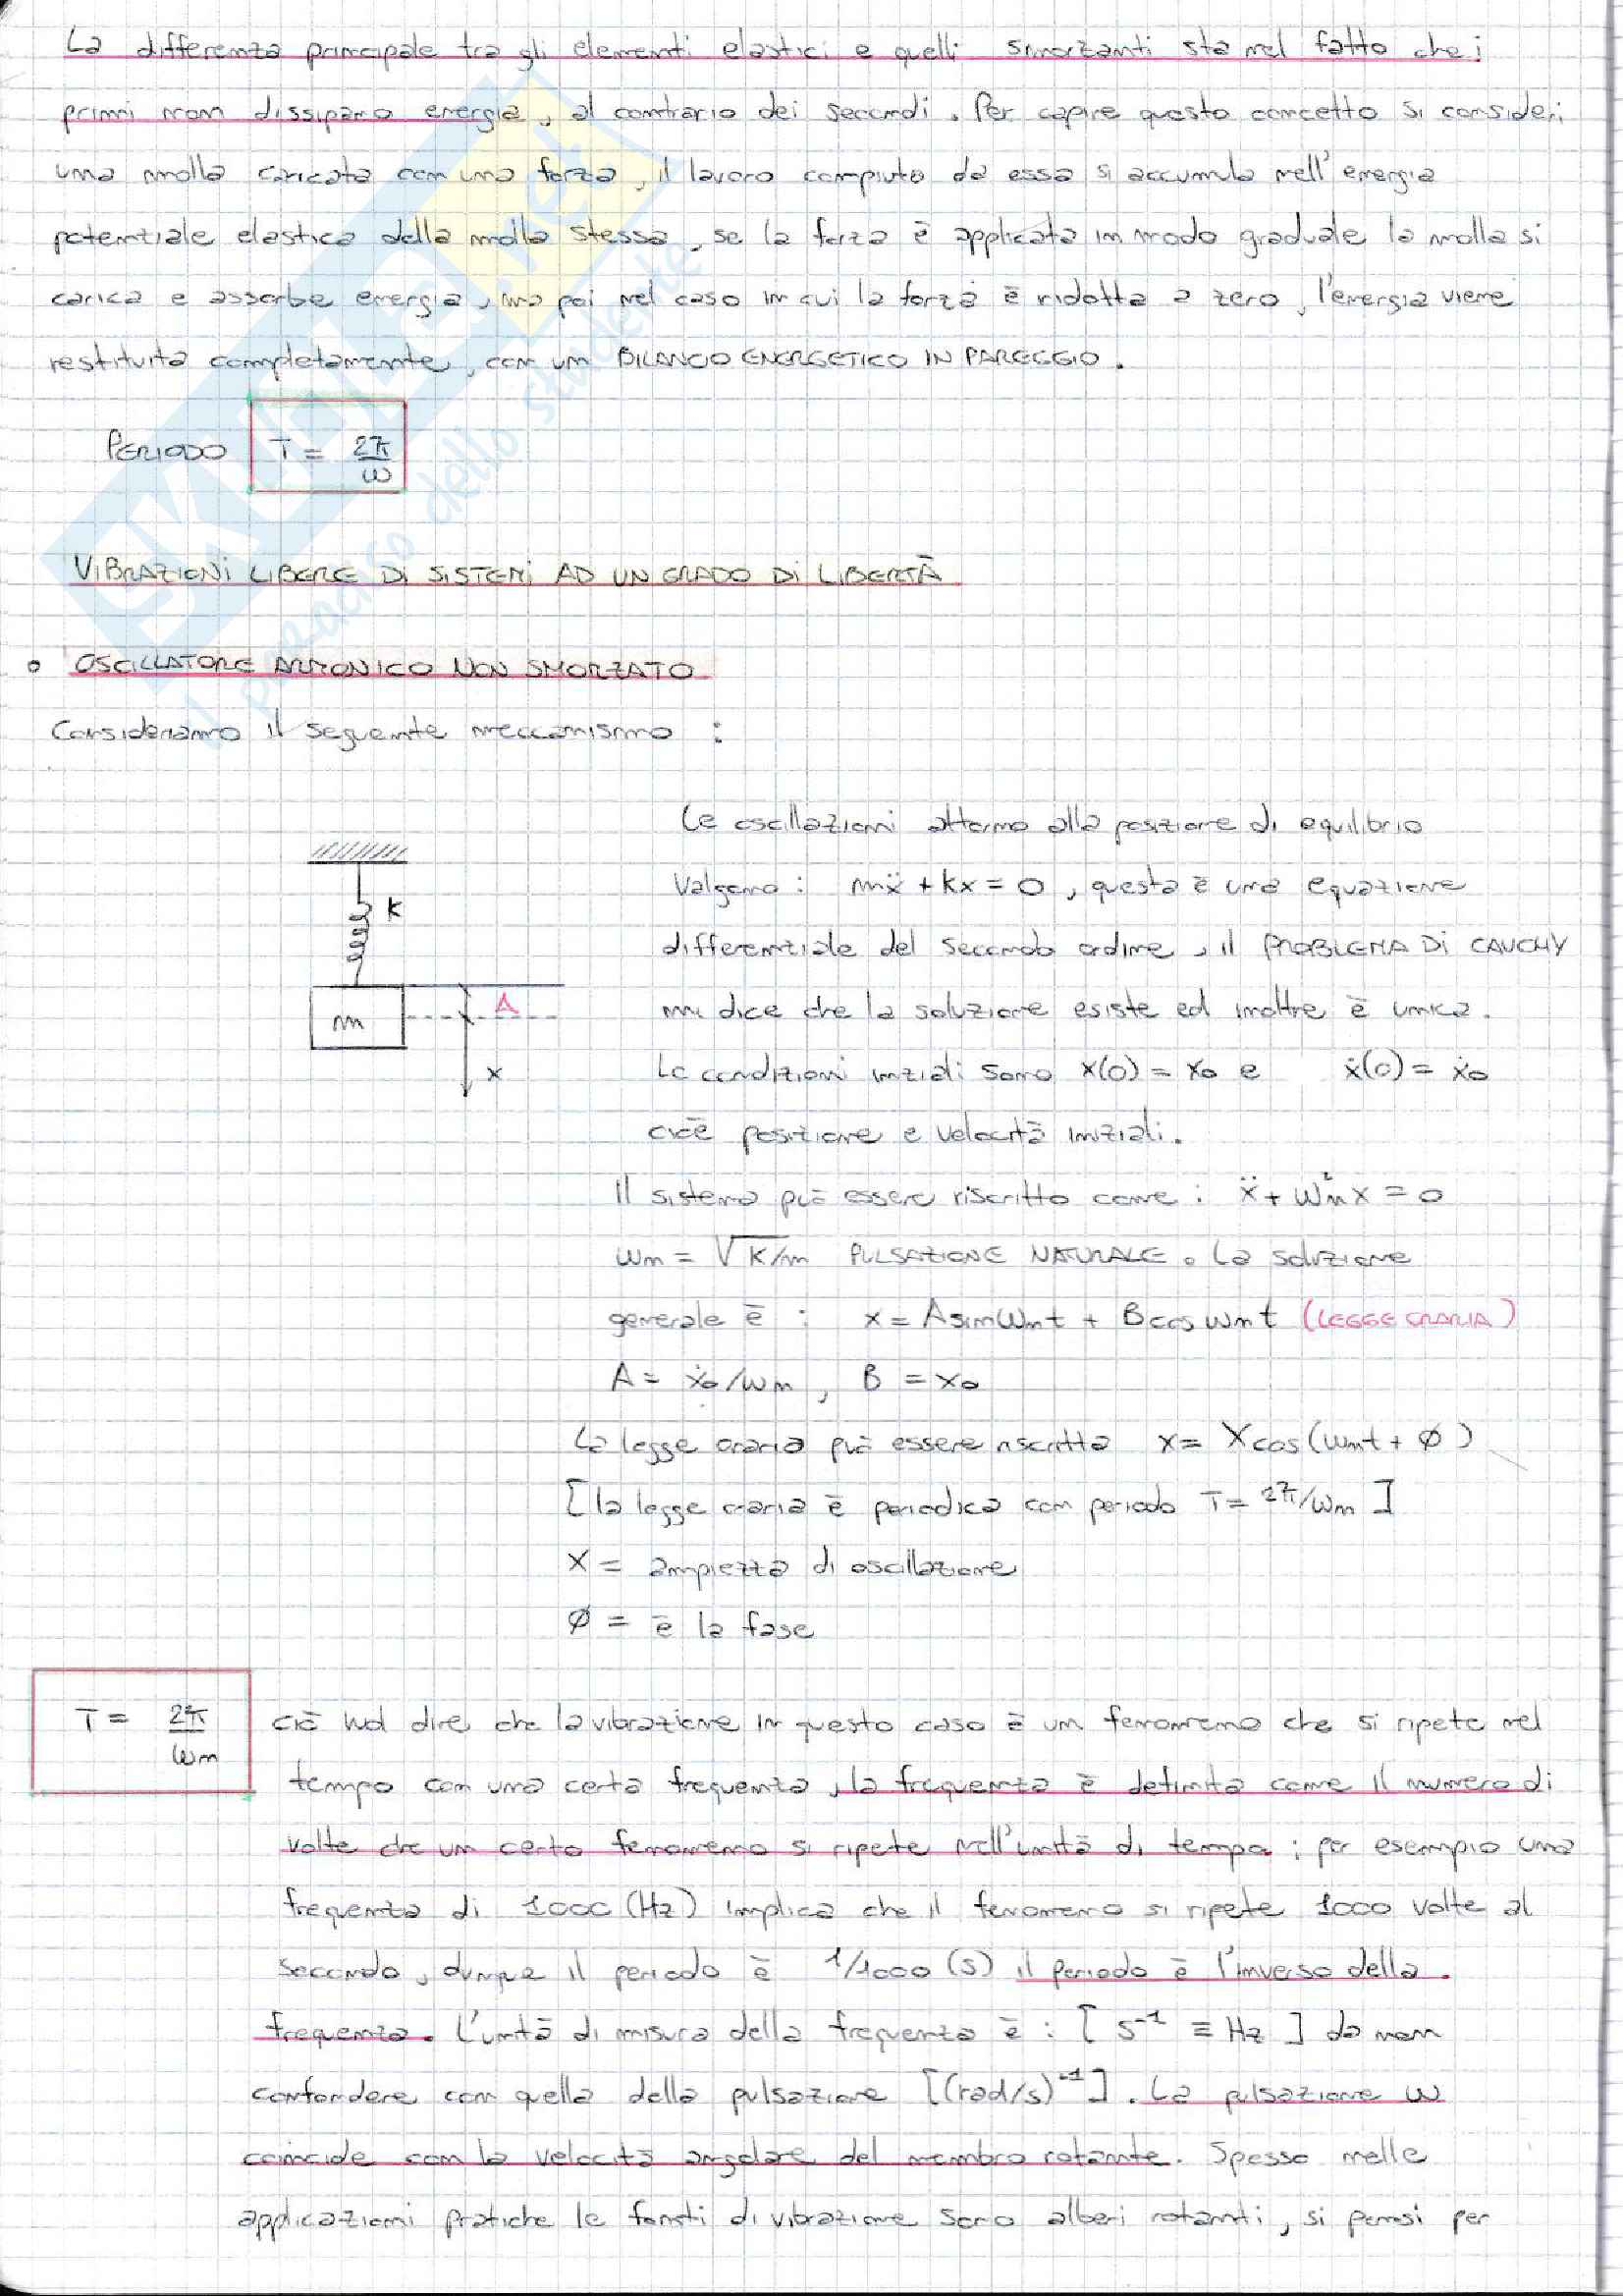 La differenza principale tra gli elementi elastici e quelli smorzanti sta nel fatto che i
primi non dissipano energia, al contrario dei secondi. Per capire questo concetto si consideri
una molla caricata con una forza, il lavoro compiuto da essa si accumula nell'energia
potenziale elastica della molla stessa, se la forza è applicata in modo graduale la molla si
carica e assorbe energia, ma poi nel caso in cui la forza è ridotta a zero, l'energia viene
restituita completamente, con un BILANCIO ENERGETICO IN PAREGGIO.
PERIODO T = 2π/ω
VIBRAZIONI LIBERE DI SISTEMI AD UN GRADO DI LIBERTÀ
OSCILLATORE ARMONICO NON SMORZATO
Consideriamo il seguente meccanismo :
Le oscillazioni attorno alla posizione di equilibrio
Valgono : mẍ + kx = 0, questa è una equazione
K
differenziale del secondo ordine, il PROBLEMA DI CAUCHY
m A
mi dice che la soluzione esiste ed inoltre è unica.
x
Le condizioni iniziali sono x(0) = x₀ e ẋ(0) = ẋ₀
cioè posizione e velocità iniziali.
Il sistema può essere riscritto come : ẍ + ωn²x = 0
ωn = √K/m PULSAZIONE NATURALE. La soluzione
generale è : x = A sin ωnt + B cos ωnt (LEGGE ORARIA)
A = ẋ₀/ωn, B = x₀
La legge oraria può essere riscritta x = X cos(ωnt + ø)
[la legge oraria è periodica con periodo T = 2π/ωn]
X = ampiezza di oscillazione
ø = è la fase
T = 2π/ωn ciò vuol dire che la vibrazione in questo caso è un fenomeno che si ripete nel
tempo con una certa frequenza, la frequenza è definita come il numero di
volte che un certo fenomeno si ripete nell'unità di tempo ; per esempio una
frequenza di 1000 (Hz) implica che il fenomeno si ripete 1000 volte al
secondo, dunque il periodo è 1/1000 (s) il periodo è l'inverso della
frequenza. L'unità di misura della frequenza è : [s⁻¹ ≡ Hz] da non
confondere con quella della pulsazione [(rad/s)⁻¹]. La pulsazione ω
coincide con la velocità angolare del membro rotante. Spesso nelle
applicazioni pratiche le fonti di vibrazione sono alberi rotanti, si pensi per
SKUOLA.net
il paradiso dello studente